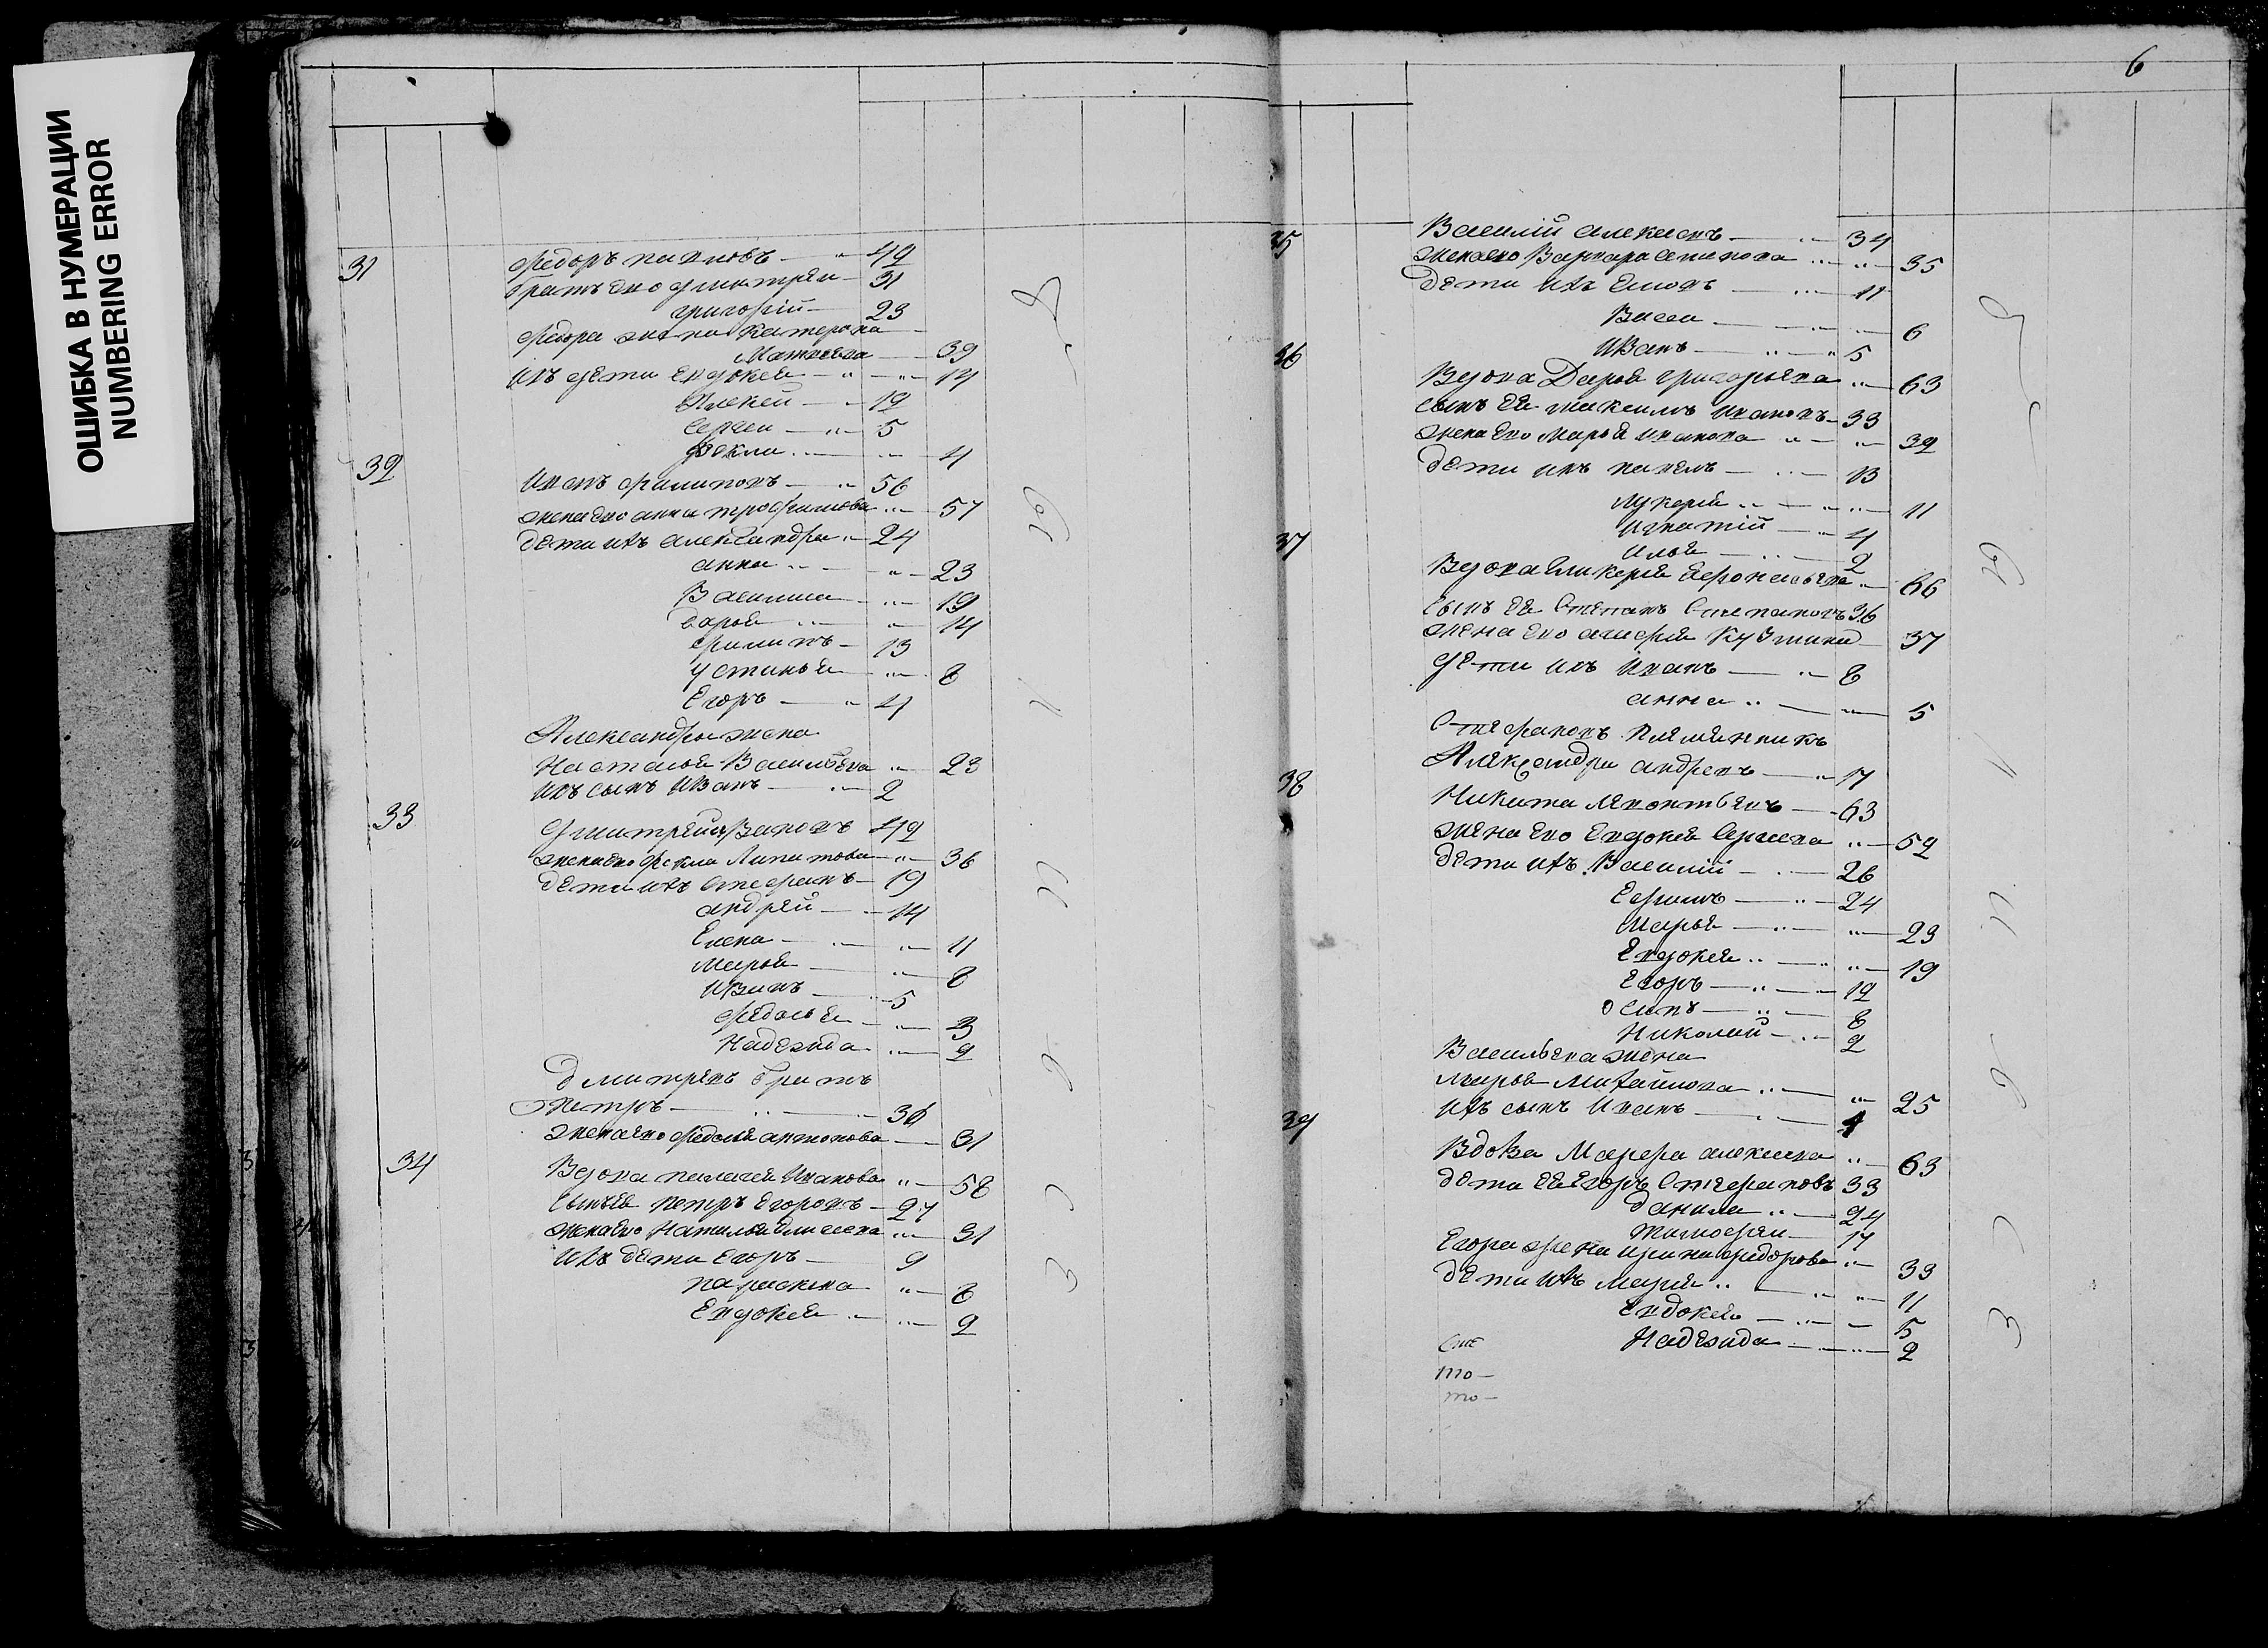 ОШИБКА В НУМЕРАЦИИ
NUMBERING ERROR
31 Федоръ павловъ 42
братъ Его дмитреи 31
григорій 23
Федора жена Катерина
Матвеева 39
ихъ дети Евдокея 14
Алексей 12
Сергеи 5
Фекла 4
32 Иванъ филиповъ 56
жена его анна трофимова 57
дети ихъ александра 24
анна 23
Василиса 19
дарья 14
филипъ 13
устинья 8
Егоръ 4
Александры жена
Насталья Васильева 23
ихъ сынъ Иванъ 2
33 дмитрей Ивановъ 42
жена его фекла 36
дети ихъ Стефанъ 19
андрей 14
Елена 11
марья 8
Иванъ 5
федосья 3
Надежда 2
дмитревъ братъ
петръ 36
жена его федосья антонова 31
34 Вдова пелагея Иванова 58
сынъ Ея петръ Егоровъ 27
жена его Наталья Елисеева 31
ихъ дети Егоръ 9
параскева 8
Евдокея 2
6
35 Василій алексеевъ 34
жена его Варвара 35
дети ихъ 11
Васса 6
Иванъ 5
36 Вдова Дарья григорьева 63
сынъ Ея максимъ Ивановъ 33
жена Его марья иванова 32
дети ихъ павелъ 13
лукерія 11
игнатій 4
илья 2
37 Вдова гликерія 66
сынъ Ея Степанъ Степановъ 36
жена его агафія Кузмина 37
дети ихъ Иванъ 8
анна 5
Стефановъ племянникъ
Александра андревъ 17
38 Никита левонтьевъ 63
жена Его Евдокея Сергеева 52
дети ихъ Василій 26
Ефимъ 24
Марья 23
Евдокея 19
Егоръ 12
осипъ 8
Николай 2
Васильева жена
марья Михайлова 25
ихъ сынъ Иванъ 1
39 Вдова Марфа алексеева 63
дети Ея Егоръ Стефановъ 33
данила 24
тимофеи 17
Егора жена ирина федорова 33
дети ихъ марія 11
Евдокея 5
Надежда 2
то
то